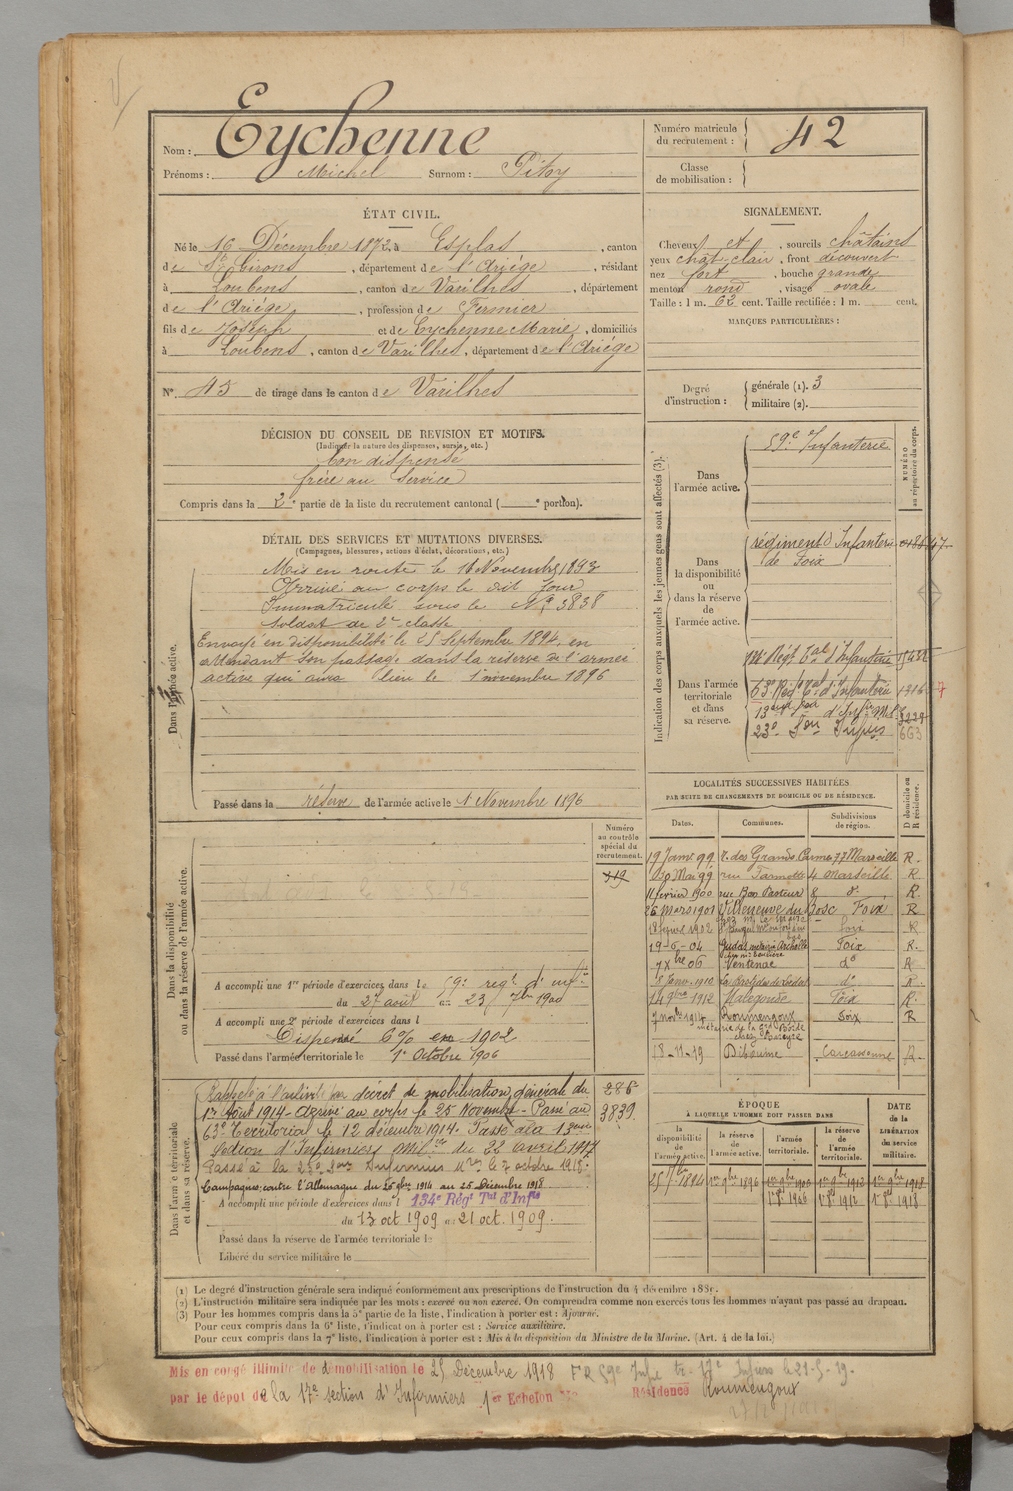 Nom : Eychenne
Prénoms : Michel Surnom : Pitoy
Numéro matricule du recrutement : 42
Classe de mobilisation :
ÉTAT CIVIL.
Né le 16 Décembre 1872, à Esplas, canton
de St Girons, département de l'Ariége, résidant
à Loubens, canton de Varilhes, département
de l'Ariége, profession de Fermier
fils de Joseph et de Eychenne Marie, domiciliés
à Loubens, canton de Varilhes, département de l'Ariége
N° 45 de tirage dans le canton de Varilhes
SIGNALEMENT.
Cheveux et, sourcils châtains
yeux chât. clair, front découvert
nez fort, bouche grande
menton rond, visage ovale
Taille : 1 m. 62 cent. Taille rectifiée : 1 m. cent.
MARQUES PARTICULIÈRES :
Degré d'instruction : générale (1). 3
militaire (2).
DÉCISION DU CONSEIL DE REVISION ET MOTIFS.
(Indiquer la nature des dispenses, sursis, etc.)
bon dispensé
frère au service
Compris dans la 2e partie de la liste du recrutement cantonal ( e portion).
DÉTAIL DES SERVICES ET MUTATIONS DIVERSES.
(Campagnes, blessures, actions d'éclat, décorations, etc.)
Dans l'armée active.
Mis en route le 16 Novembre 1893
Arrivé au corps le dit jour
Immatriculé sous le No 3838
Soldat de 2e classe
Envoyé en disponibilité le 25 Septembre 1894, en
attendant son passage dans la réserve de l'armée
active qui aura lieu le 1 novembre 1896
Passé dans la réserve de l'armée active le 1 Novembre 1896
Indication des corps auxquels les jeunes gens sont affectés (3).
NUMÉRO au répertoire du corps.
Dans l'armée active.
59e Infanterie
Dans la disponibilité ou dans la réserve de l'armée active.
régiment d'Infanterie
de Foix
Dans l'armée territoriale et dans sa réserve.
134e Régt Tal d'Infanterie
63e Régt Tal d'Infanterie 1316
13e d'Infre Mil. 3239
23e 663
LOCALITÉS SUCCESSIVES HABITÉES
PAR SUITE DE CHANGEMENTS DE DOMICILE OU DE RÉSIDENCE.
Dates. Communes. Subdivisions de région. D domicile ou R résidence.
19 Janv 99 r. des Grands Carmes 77 Marseille R.
30 Mai 99 4 Marseille R.
11 février 1900 rue Bon Pasteur 8 do R
26 Mars 1901 Villeneuve du Bosc Foix R
18 février 1902 Foix R
19-6-04 Foix R.
7 Xbre 06 Ventenac do R
8 Janv. 1910 do R
14 9bre 1912 Malegoude Foix R.
7 nov. 1914 Roumengoux Foix R
métairie de la Gde Borde
18-11-19 Carcassonne R.
Dans la disponibilité ou dans la réserve de l'armée active.
Numéro au contrôle spécial du recrutement.
119
A accompli une 1re période d'exercices dans le 59e régt d'infie
du 27 août au 23 7bre 1900
A accompli une 2e période d'exercices dans l
Dispensé 6% en 1902
Passé dans l'armée territoriale le 1er Octobre 1906
Dans l'armée territoriale et dans sa réserve.
Rappelé à l'activité par décret de mobilisation générale du
1er Août 1914 - Arrivé au corps le 25 Novembre - Passé au
63e Territorial le 12 décembre 1914. Passé à la 13eme
Section d'Infirmiers Milres du 22 avril 1917
Passé à la 23e Son Infirmiers Mres le 7 octobre 1918.
Campagnes : contre l'Allemagne du 25 9bre 1914 au 25 Décembre 1918
A accompli une période d'exercices dans l 134e Régt Tal d'Infie
du 13 oct 1909 au 21 oct. 1909.
Passé dans la réserve de l'armée territoriale le
Libéré du service militaire le
286
3839
ÉPOQUE
À LAQUELLE L'HOMME DOIT PASSER DANS
DATE de la LIBÉRATION du service militaire.
la disponibilité de l'armée active.
la réserve de l'armée active.
l'armée territoriale.
la réserve de l'armée territoriale.
25 7bre 1894 1er 9bre 1896 1er 9bre 1906 1er 9bre 1912 1er 9bre 1918
1er 8bre 1906 1er 8bre 1912 1er 8bre 1918
(1) Le degré d'instruction générale sera indiqué conformément aux prescriptions de l'instruction du 4 décembre 1889.
(2) L'instruction militaire sera indiquée par les mots : exercé ou non exercé. On comprendra comme non exercés tous les hommes n'ayant pas passé au drapeau.
(3) Pour les hommes compris dans la 5e partie de la liste, l'indication à porter est : Ajourné.
Pour ceux compris dans la 6e liste, l'indication à porter est : Service auxiliaire.
Pour ceux compris dans la 7e liste, l'indication à porter est : Mis à la disposition du Ministre de la Marine. (Art. 4 de la loi.)
Mis en congé illimité de démobilisation le 25 Décembre 1918
par le dépôt de la 17e section d'Infirmiers 1er Echelon No
Résidence Roumengoux